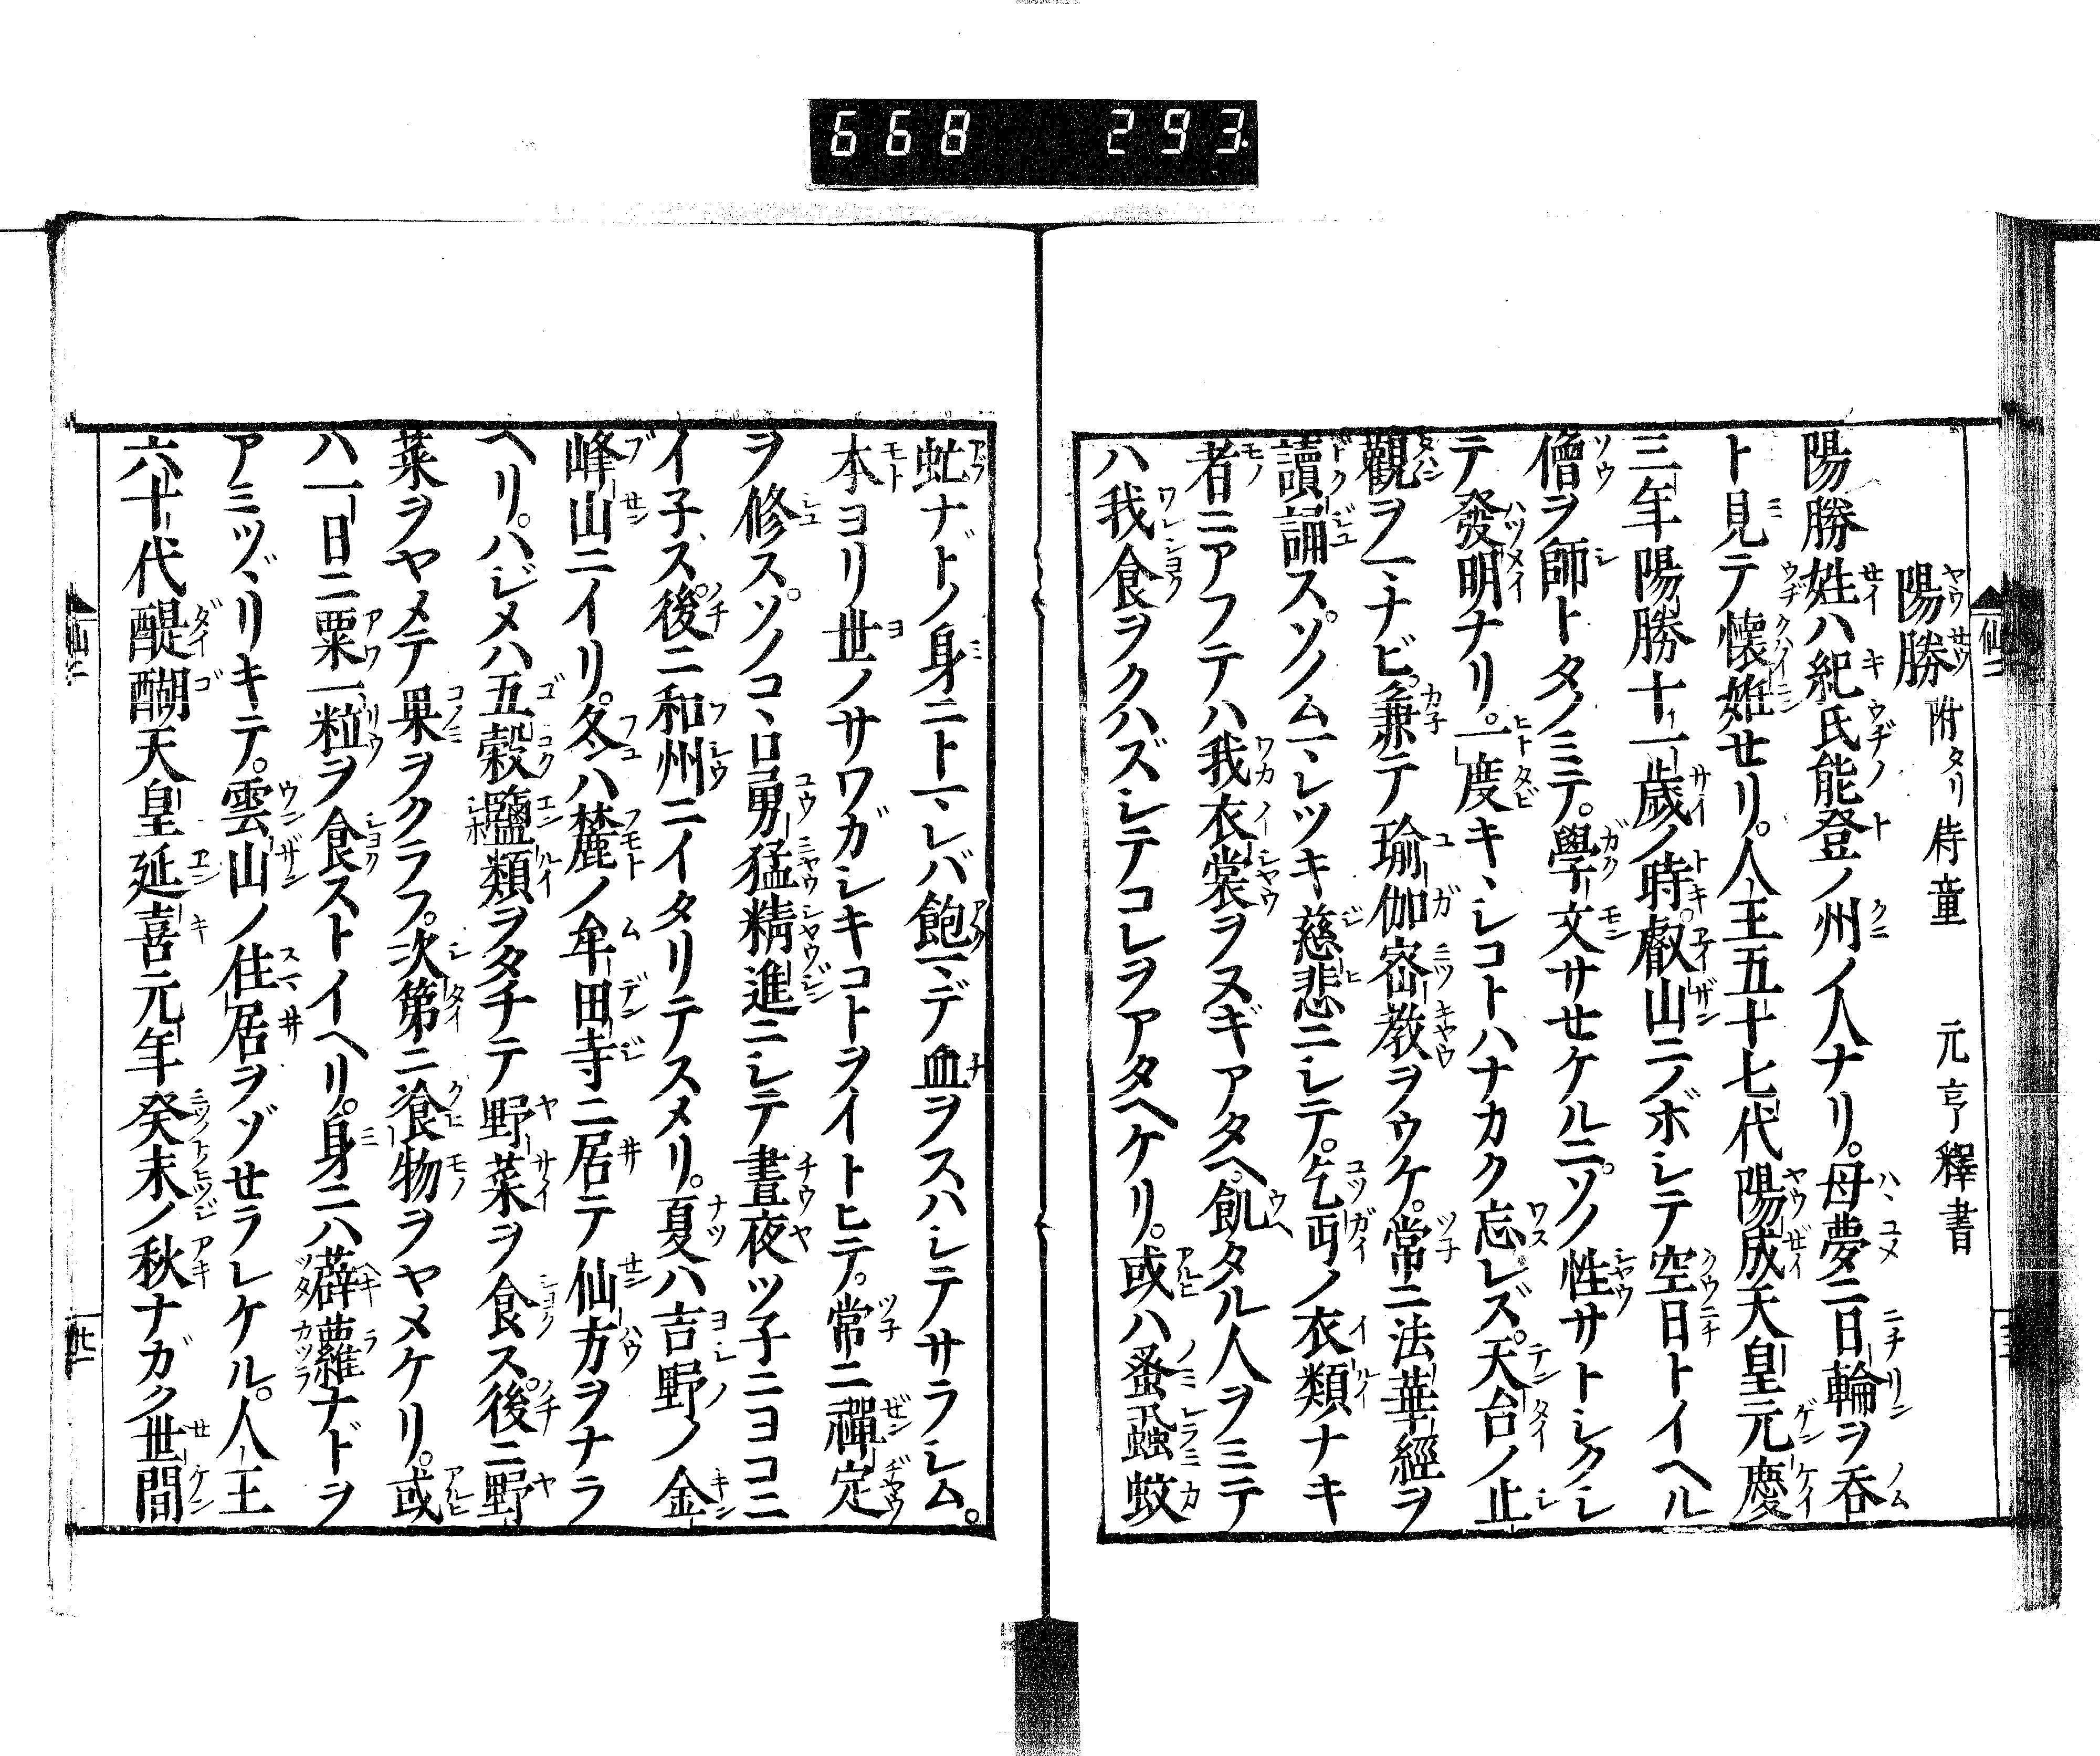 668 293
陽勝 附タリ侍童 元亨釋書
陽勝ハ姓ハ紀氏能登ノ州ノ人ナリ。母夢ニ日輪ヲ呑
ト見テ懐姙セリ。人王五十七代陽成天皇元慶
三年陽勝十一歳ノ時。叡山ニノボレテ空日トイヘル
僧ヲ師トタノミテ。學文サセケルニ。ソノ性サトレクシ
テ發明ナリ。一度キヽシコトハナカク忘レズ。天台ノ止
觀ヲマナビ。兼テ瑜伽宻教ヲウケ。常ニ法華經ヲ
讀誦ス。ソノムマレツキ慈悲ニシテ。乞丐ノ衣類ナキ
者ニアフテハ我衣裳ヲヌギアタヘ。飢タル人ヲミテ
ハ我食ヲクハズシテコレヲアタヘケリ。或ハ蚤虱蚊
虻ナドノ身ニトマレバ飽マデ血ヲスハシテサラシム。
本ヨリ世ノサワガシキコトヲイトヒテ。常ニ禪定
ヲ修ス。ソノコヽロ勇猛精進ニシテ晝夜ツ子ニヨコニ
イ子ズ。後ニ和州ニイタリテスメリ。夏ハ吉野ノ金
峰山ニイリ。冬ハ麓ノ牟田寺ニ居テ仙方ヲナラ
ヘリ。ハジメハ五穀鹽類ヲタチテ野菜ヲ食ス。後ニ野
菜ヲヤメテ果ヲクラフ。次第ニ飡物ヲヤメケリ。或
ハ一日ニ粟一粒ヲ食ストイヘリ。身ニハ薜蘿ナドヲ
アミツヾリキテ。雲山ノ住居ヲゾセラレケル。人王
六十代醍醐天皇延喜元年癸未ノ秋ナガク世間